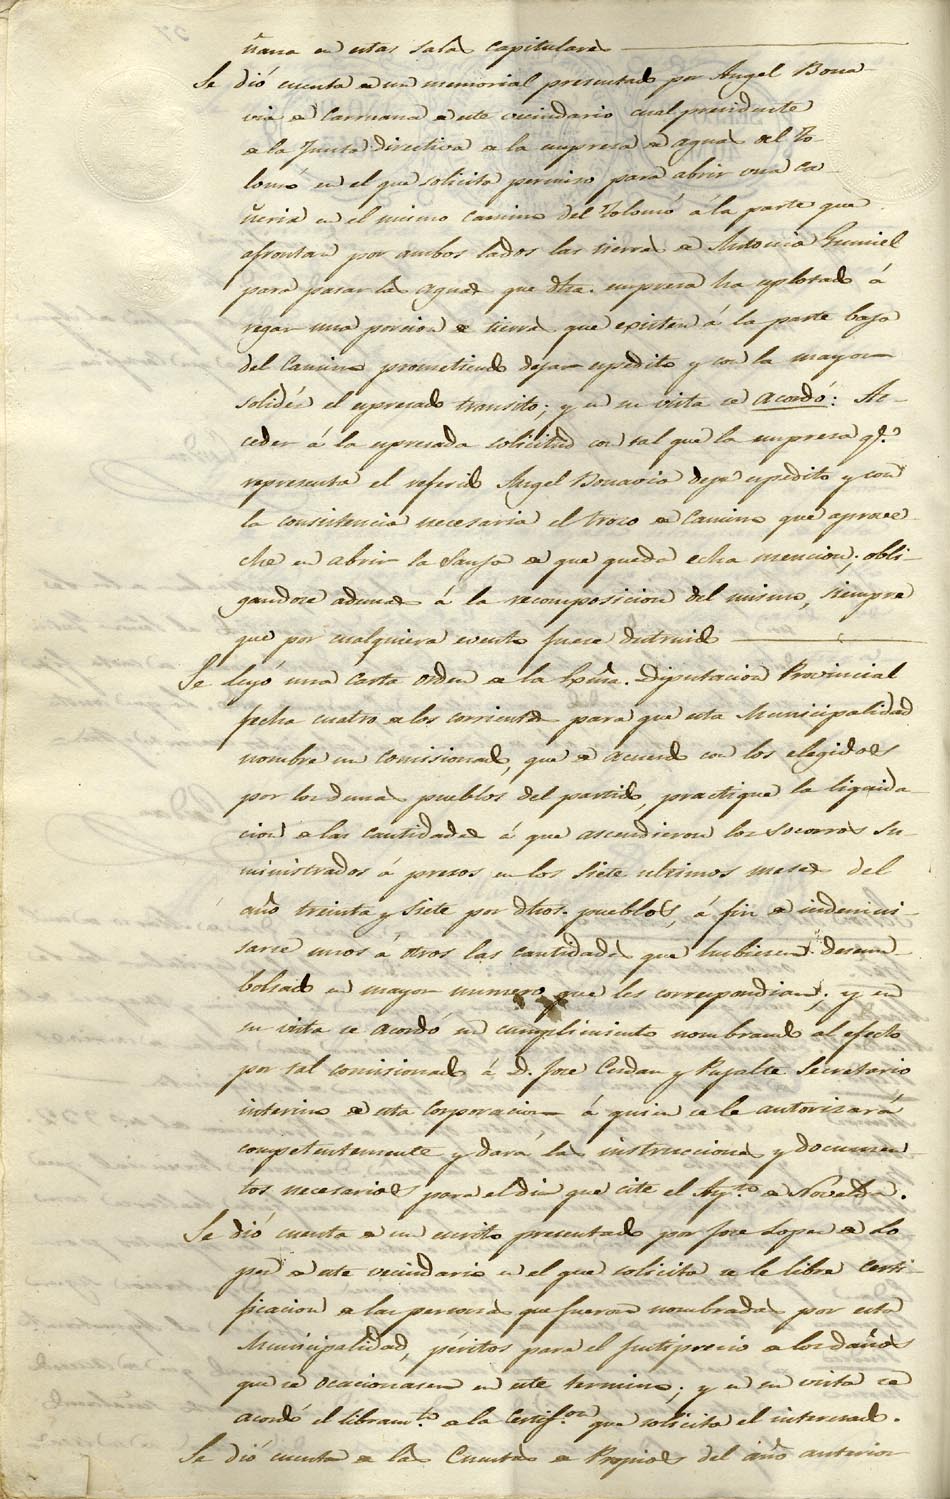 ñana en estas salas capitulares
Se dió cuenta de un memorial presentado por Angel Bona-
via de Carruana de este vecindario cual presidente
de la Junta Directiva de la empresa de aguas del To-
lomó en el que solicita permiso para abrir una ca-
ñeria en el mismo camino del Tolomó á la parte que
afrontan por ambos lados las tierras de Antonio Gumiel
para pasar las aguas que dha. empresa ha esplotado á
regar una porcion de tierras que existen á la parte baja
del Camino prometiendo dejar espedito y con la mayor
solidéz el espresado transito; y en su vista se acordó: Ac-
ceder á la espresada solicitud con tal que la empresa qe.
representa el referido Angel Bonavia deje espedito y con
la consistencia necesaria el troso de Camino que aprove-
che en abrir la Sanja de que queda echa mencion; obli-
gandose ademas á la recomposicion del mismo, siempre
que por cualquiera evento fuese destruido
Se leyó una Carta orden de la Exma. Diputacion Provincial
fecha cuatro de los corrientes para que esta Municipalidad
nombre un comisionado, que de acuerdo con los elegidos
por los demas pueblos del partido practique la liquida-
cion de las cantidades á que ascendieron los socorros su-
ministrados á presos en los Siete ultimos meses del
año treinta y Siete por dhos. pueblos, á fin de indemni-
sarse unos á otros las cantidades que hubiesen desem-
bolsado en mayor numero que les correspondian; y en
su vista se acordó su cumplimiento nombrando al efecto
por tal comisionado á D. Jose Cerdan y Pujalte Secretario
interino de esta Corporacion á quien se le autorizará
competentemente y dará las instrucciones y documen-
tos necesarios para el dia que cite el Aytto. de Novelda.
Se dió cuenta de un escrito presentado por Jose Lopes de Lo-
pes de este vecindario en el que solicita se le libre Certi-
ficacion de las personas que fueron nombradas por esta
Municipalidad, péritos para el justiprecio de los daños
que se ocacionasen en este termino; y en su vista se
acordó el libramto. de la Certifon. que solicita el interesado.
Se dió cuenta de las Cuentas de Propios del año anterior